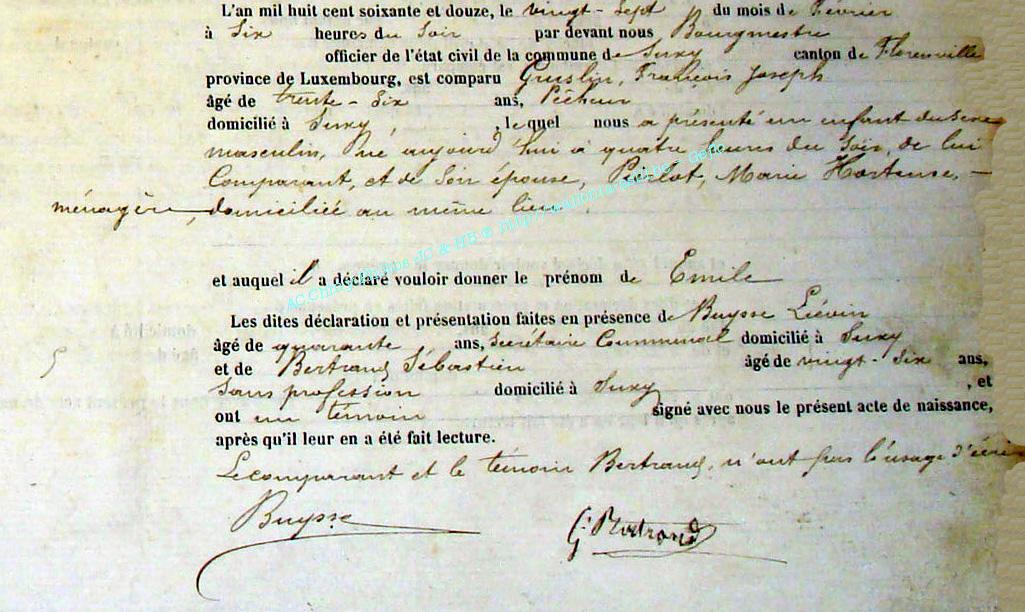 L'an mil huit cent soixante et douze, le vingt-sept du mois de Février
à Six heures du Soir par devant nous Bourgmestre
officier de l'état civil de la commune de Suxy canton de Florenville
province de Luxembourg, est comparu Guislin, François Joseph
âgé de trente-six ans, Pêcheur
domicilié à Suxy, , lequel nous a présenté un enfant du Sexe
masculin, né aujourd'hui à quatre heures du Soir, de lui
Comparant, et de Son épouse, Pierlot, Marie Hortense, —
ménagère, domiciliée au même lieu.
et auquel il a déclaré vouloir donner le prénom de Emile
Les dites déclaration et présentation faites en présence de Buysse Liévin
âgé de quarante ans, Secrétaire Communal domicilié à Suxy
et de Bertrand Sébastien âgé de vingt-six ans,
Sans profession domicilié à Suxy , et
ont un témoin signé avec nous le présent acte de naissance,
après qu'il leur en a été fait lecture.
Le comparant et le témoin Bertrand, n'ont pas l'usage
Buysse G. Bertrand